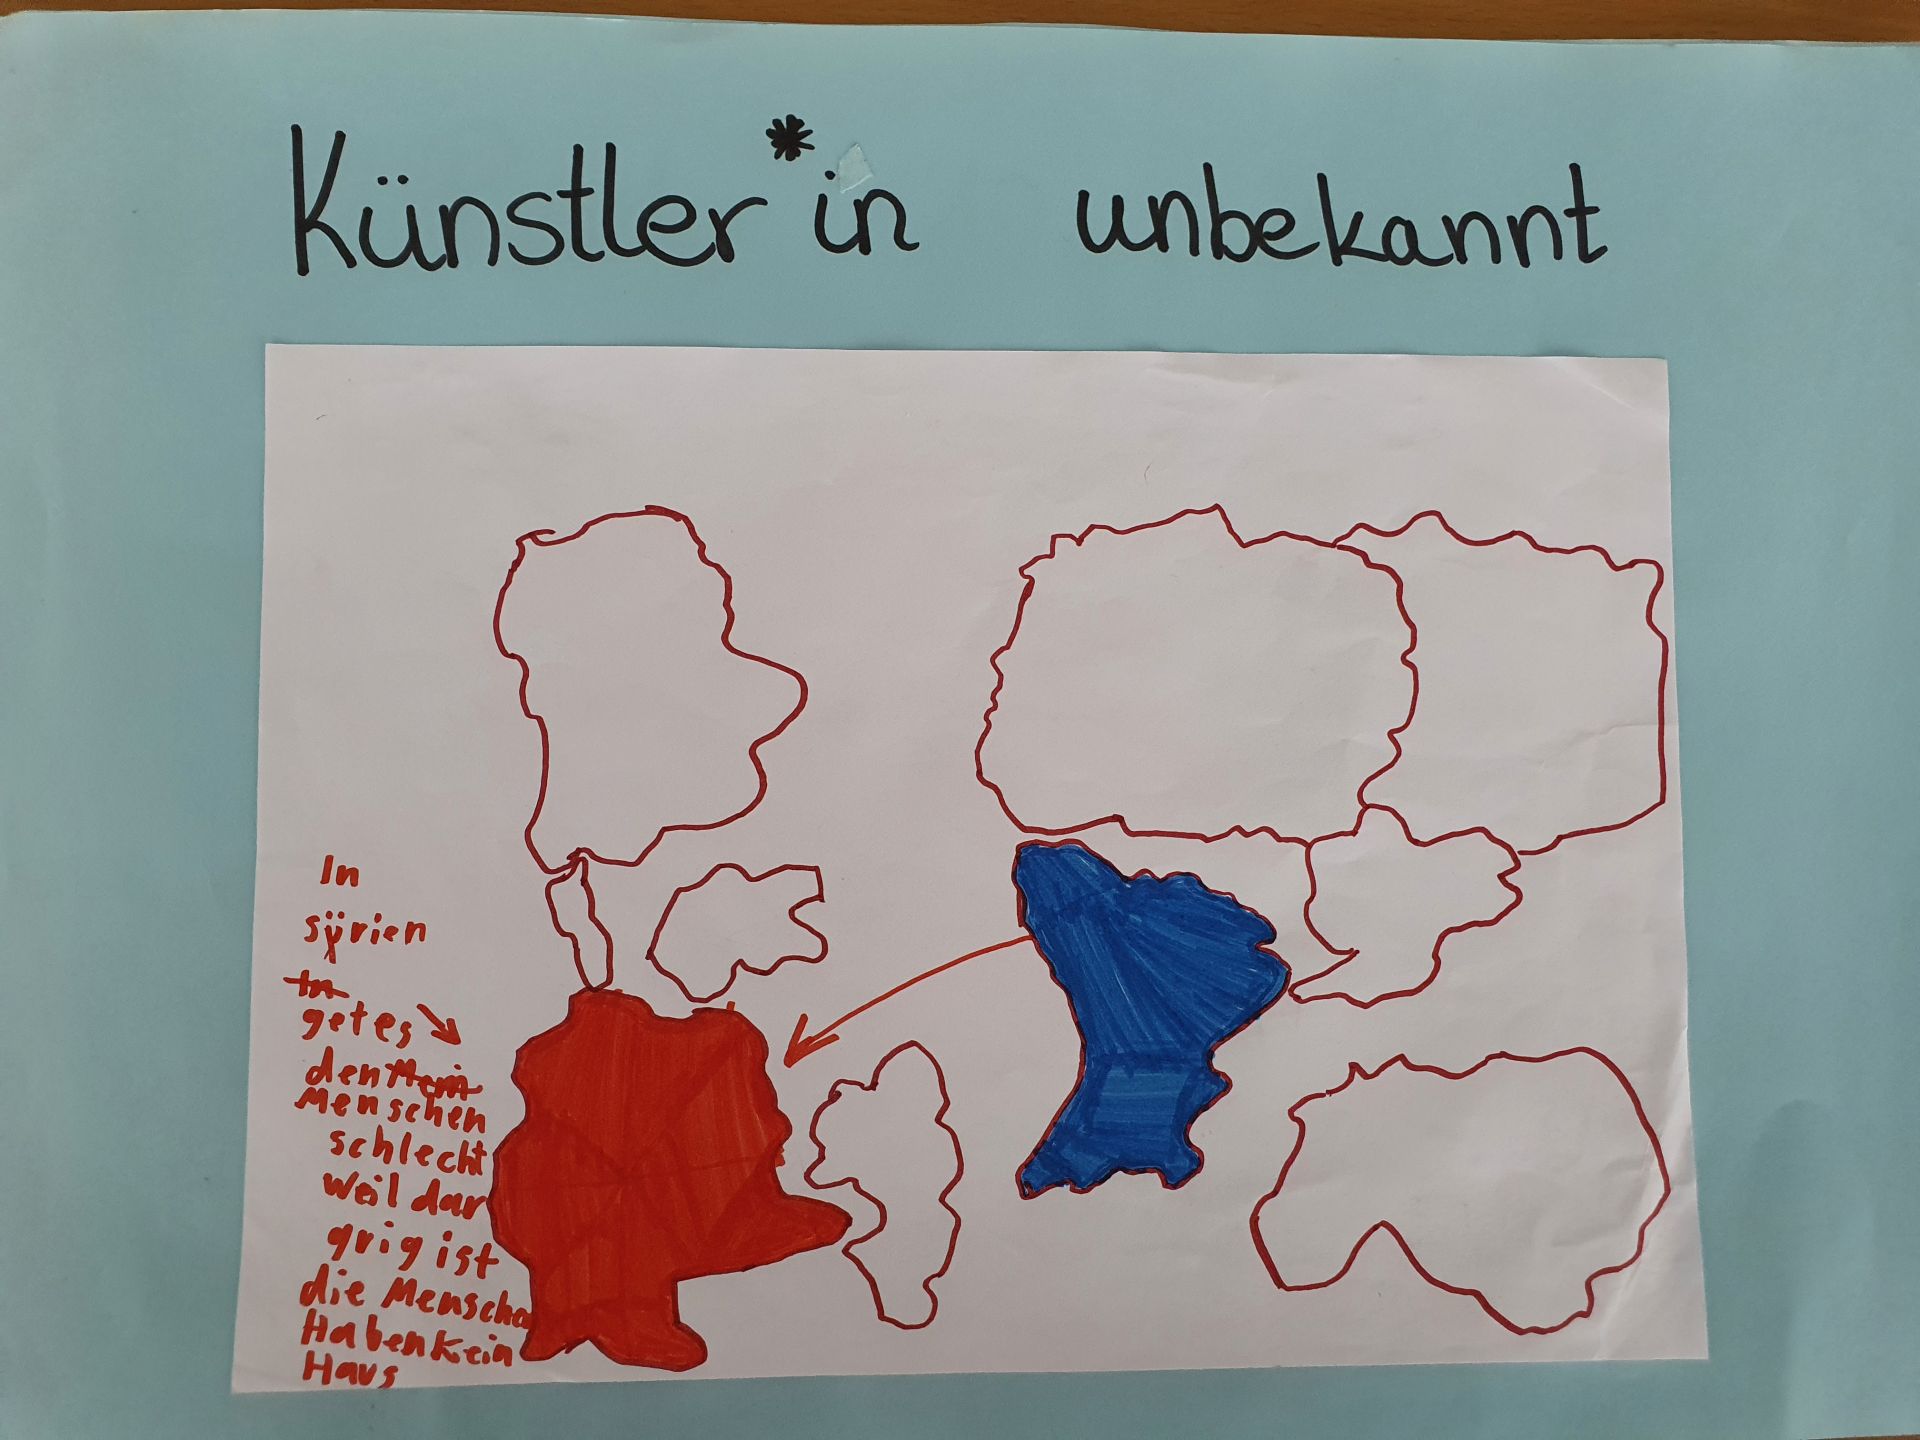 Künstler*in unbekannt
In
sÿrien
In
getes
den Mein
Menschen
schlecht
weil dar
grig ist
die Menscha
Haben kein
Haus